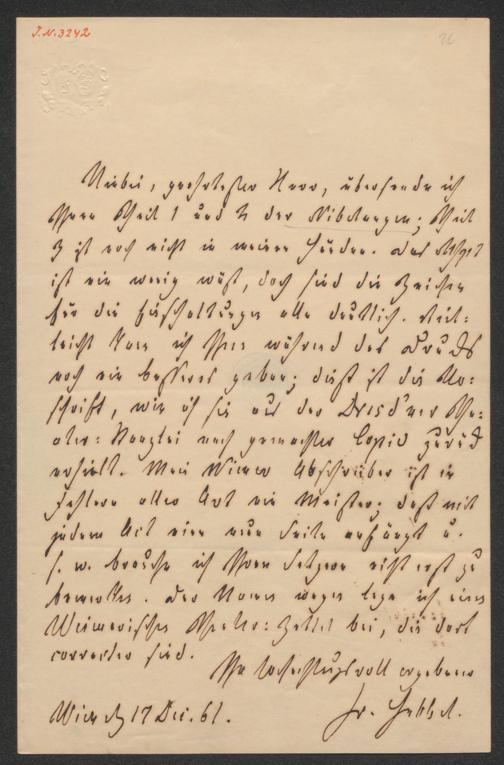 I.N. 3242
Hiebei, geehrtester Herr, übersende ich
Ihnen Theil 1 und 2 der Nibelungen; Theil
3 ist noch nicht in meinen Händen. Das Mspt
ist ein wenig wüst, doch sind die Zeichen
für die Einschaltungen alle deutlich. Viel-
leicht kann ich Ihnen während des Drucks
noch ein besseres geben; dieß ist die Ab-
schrift, wie ich sie aus der Dresd'ner The-
ater-Kanzlei nach gemachter Copie zurück
erhielt. Mein Wiener Abschreiber ist in
Fehlern aller Art ein Meister; daß mit
jedem Act eine neue Seite anfängt u.
s. w. brauche ich Ihrem Setzer nicht erst zu
bemerken. Der Namen wegen lege ich einen
Weimarischen Theater-Zettel bei, die dort
correcter sind.
Ihr hochachtungsvoll ergebener
Wien d 17 Dec. 61.
Fr. Hebbel.